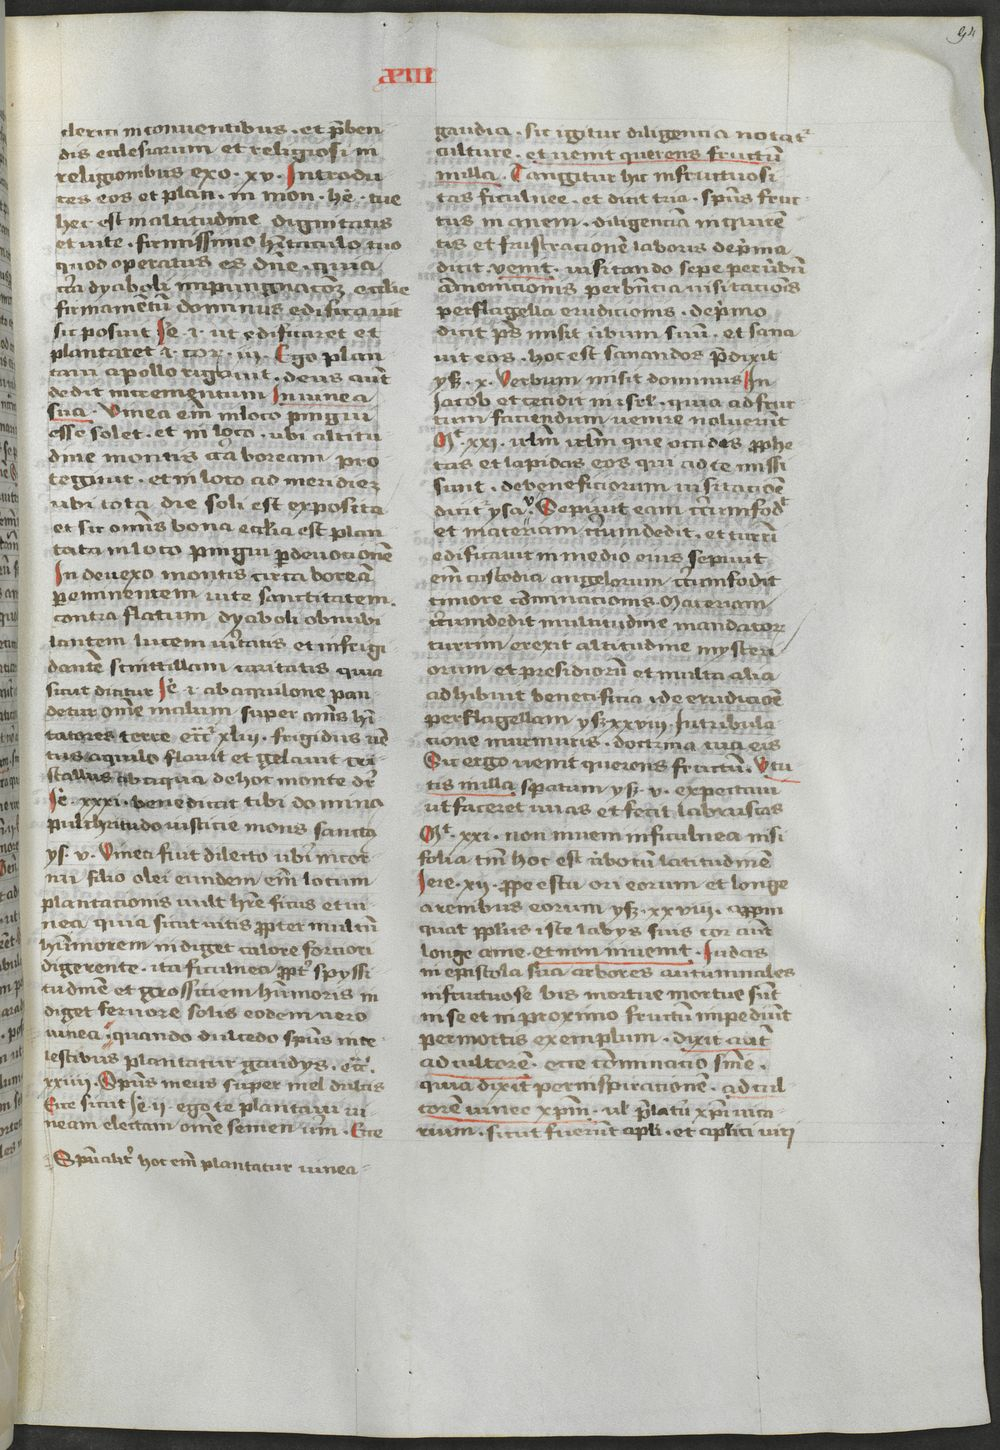 94
XIII
clerici in conuentibus · et p̄ben-
dis ecclesiarum et religiosi in
religionibus exo · xv · Introdu
ces eos et plan · in mon · he᷑ · tue
hec est in altitudine dignitatis
et uite · firmissimo h̄itaculo tuo
quod operatus es dn̄e · quia
cōtra dyaboli inpungnacoꝫ ecclie
firmamētū dominus edificauit
sic posuit Je · ı · ut edificaret et
plantaret ı · cor · iii · Ego plan
taui apollo rigauit · deus aūt
dedit incrementum In uinea
sua · Vinea em̄ in loco pingui
esse solet · et in loco · ubi altitu
dine montis cīca boream pro
tegatur · et in loco ad meridieꝫ
ubi tota die soli est exposita
et sic om̄s bona ecclīa est plan
tata in loco pingui ꝑ deuocionē
In deuexo montis circa boreā
ꝑ eminentem uite sanctitatem ·
contra flatum dyaboli obnubi
lantem lucem u᷑itatis et infrigi
dantē scintillam caritatis quia
sicut dicitur Je᷑ · ı · ab aquilone pan
detur om̄e malum super om̄s h̄i
tatores terre ecc᷑i xliii · frigidus uē
tus aquilo flauit et gelauit cri
stallus ab aqua de hoc monte dr̄
Je᷑ · xxxi · benedicat tibi dominus
pulchritudo iusticie mons sanctus
ys · v · Vinea fuit dilecto ub᷑i in cor
nu filio olei eundem em̄ locum
plantacionis uult h̄re ficus et ui
nea quia sicut uitis ꝓpter multū
humorem indiget calore forciori
digerente · ita ficulnea ꝓpt᷑ spyssi
tudinē et grossiciem humoris in
diget feruore solis eodem uero
uinea · quando dulcedo sp̄us in ce
lestibus plantatur gaudys · ecc᷑i
xxiiii · Sp̄us meus super mel dulcis
Ecce sicut Je · ii · ego te plantaui ui
neam electam om̄e semen um̄ · Ecce
Sp̄ualit᷑ hoc em̄ plantatur uinea
gaudia · sic igitur diligencia notat᷑
culture · et uenit querens fructū
in illa · Tangitur hic infructuosi
tas ficulnee · et dicit tria · sp̄us fruc
tus inanem · diligenciā in quirē
tis et frustracionē laboris de p᷑ma
dicit · venit · uisitando sepe per u᷑bū
āmonicionis per b̄nficia uisitacōis
per flagella erudicionis · de p᷑mo
dicit ps̄ misit u᷑bum suū · et sana
uit eos · hoc est sanandos p̄dixit
ysa · x · Verbum misit dominus In
Jacob et cecidit in isrl̄ · quia ad fruc
tum faciendum uenire noluerūt
Mt᷑ · xxi · irl̄m irl̄m que occides ꝓphe
tas et lapidas eos qui ad te missi
sunt · de beneficiorum uisitacioē
dicit ysa v᷑ · Sepiuit eam c᷑cumfod᷑t
et materiam c᷑cumdedit · et turrī
edificauit in medio eius Sepiuit
em̄ custodia angelorum c᷑cumfodit
timore cōminacionis · Materiam
c᷑cumdedit multitudine mandatoꝝ
turrim erexit altitudine mysteri
orum et presidiorū et multa alia
adhibuit beneficia · de erudicioē
per flagellam ysa xxviii · In tribula
cione murmuris · doctrina tua eis
Sic ergo uenit querens fructū · Vtu
tis in illa spatum ysa · v · expectaui
ut faceret uuas et fecit labruscas
Mt᷑ · xxi · non inuem in ficulnea nisi
folia tm̄ hoc est u᷑borū latitudinē
Jere · xii · ꝓpe es tu ori eorum et longe
a renibus eorum ysa · xxviii · appin
quat ꝓplus iste labys suis cor aūt
longe a me · et non inuenit · Judas
in epistola sua arbores autumnales
infructuose bis mortue mortue sūt
in se et in proximo fructū impediūt
per mortis exemplum · dixit aūt
ad cultorē · ecce cōminacio sn̄ie ·
quia dixit per inspiracionē · ad cul
torē uinee xp̄m · ul̄ p̄latū xp̄i uica
rium · sicut fuerūt apl̄i · et apl̄ici uiri